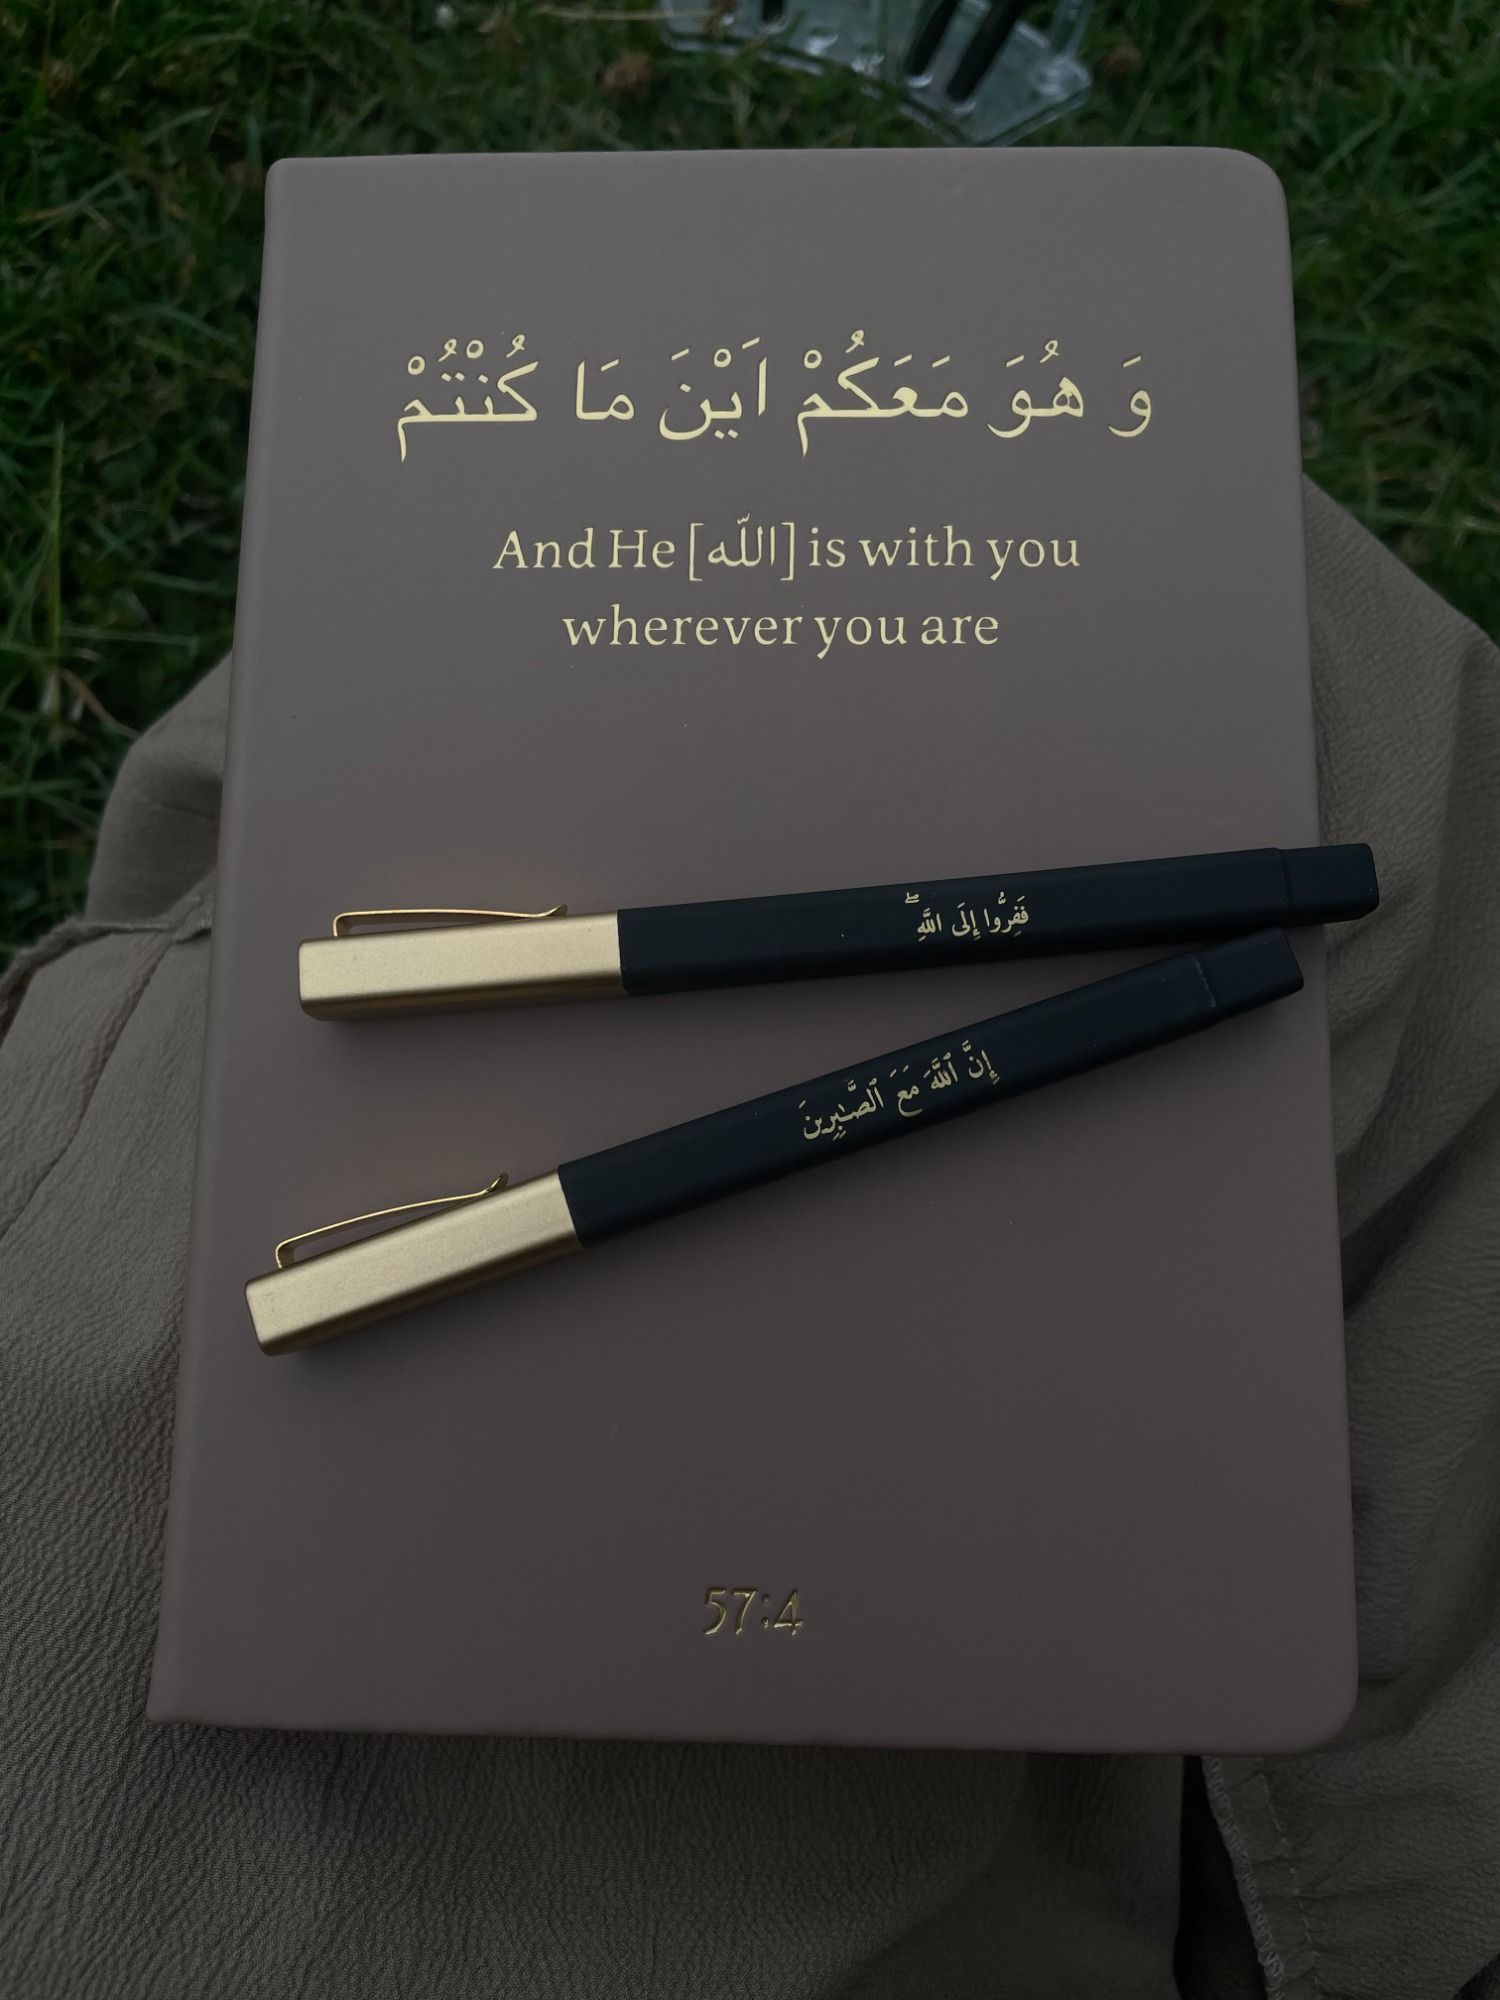 وَ هُوَ مَعَكُمْ اَيْنَ مَا كُنْتُمْ
And He [اللّه] is with you
wherever you are
فَفِرُّوا إِلَى اللَّهِ ۖ
إِنَّ ٱللَّهَ مَعَ ٱلصَّـٰبِرِينَ
57:4